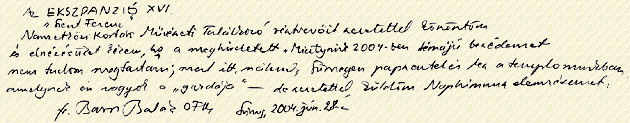 Az EKSZPANZIÓ XVI.
„Szent Ferenc"
Nemzetközi Kortárs Művészeti Találkozó résztvevőit szeretettel köszöntöm
és elnézésüket kérem, hogy a meghirdetett „Misztynité 2004-ben témájú beszédemet
nem tudom megtartani; mert itt, nálunk, Sümegen papszentelés lesz a templomunkban,
amelynek én vagyok a „gazdája" — de szeretettel küldöm Naphimnusz elemzésemet:
fr. Barsi Balázs OFM, Sümeg, 2004. jún. 28-a